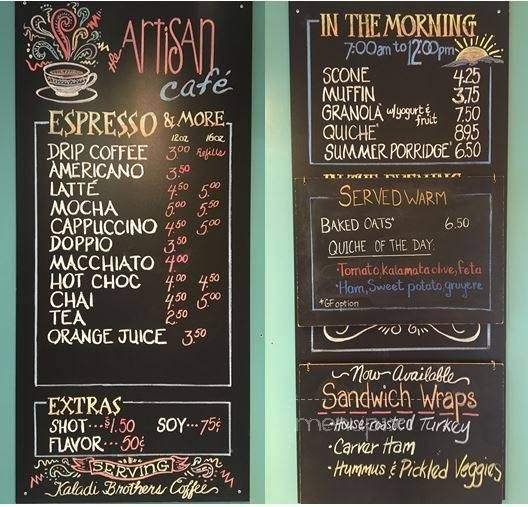 the Artisan
café
ESPRESSO & MORE
12oz 16oz
DRIP COFFEE 3.00 Refills
AMERICANO 3.50
LATTÉ 4.50 5.00
MOCHA 5.00 5.50
CAPPUCCINO 4.50 5.00
DOPPIO 3.50
MACCHIATO 4.00
HOT CHOC 4.00 4.50
CHAI 4.50 5.00
TEA 2.50
ORANGE JUICE 3.50
EXTRAS
SHOT...$1.50 SOY...75¢
FLAVOR...50¢
SERVING
Kaladi Brothers Coffee
IN THE MORNING
7:00am to 12:00pm
SCONE 4.25
MUFFIN 3.75
GRANOLA* w/yogurt & fruit 7.50
QUICHE* 8.95
SUMMER PORRIDGE* 6.50
IN THE EVENING
SERVED WARM
BAKED OATS* 6.50
QUICHE OF THE DAY:
•Tomato, Kalamata olive, feta
•Ham, Sweet potato, gruyere
*GF option
Now Available
Sandwich Wraps
•House-roasted Turkey
•Carver Ham
•Hummus & Pickled Veggies